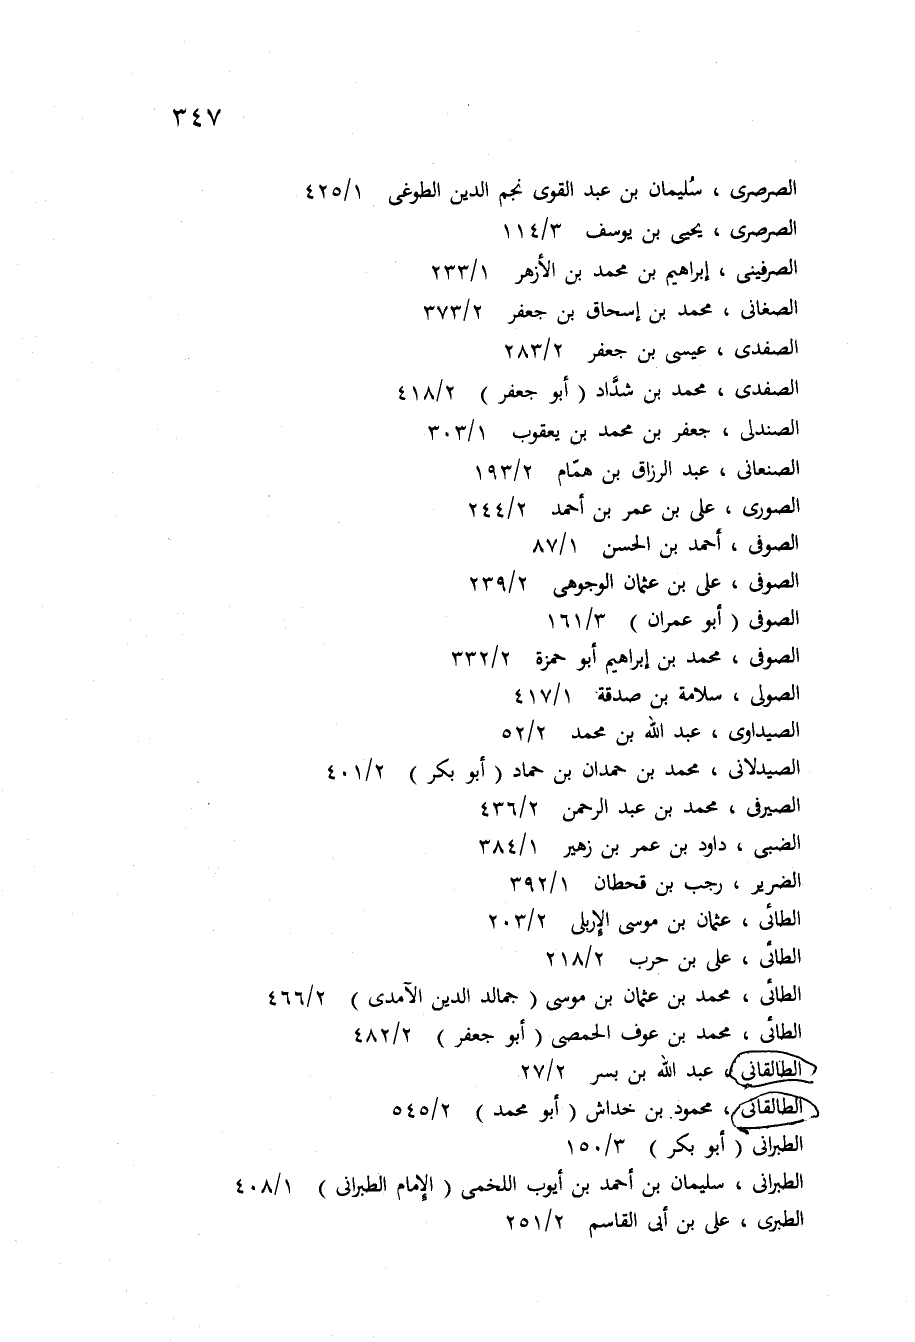 ٣٤٧
الصرصرى ، سُليمان بن عبد القوى نجم الدين الطوغى ٤٢٥/١
الصرصرى ، يحيى بن يوسف ١١٤/٣
الصرفينى ، إبراهيم بن محمد بن الأزهر ٢٣٣/١
الصغانى ، محمد بن إسحاق بن جعفر ٣٧٣/٢
الصفدى ، عيسى بن جعفر ٢٨٣/٢
الصفدى ، محمد بن شدَّاد ( أبو جعفر ) ٤١٨/٢
الصندلى ، جعفر بن محمد بن يعقوب ٣٠٣/١
الصنعانى ، عبد الرزاق بن همّام ١٩٣/٢
الصورى ، على بن عمر بن أحمد ٢٤٤/٢
الصوفى ، أحمد بن الحسن ٨٧/١
الصوفى ، على بن عثمان الوجوهى ٢٣٩/٢
الصوفى ( أبو عمران ) ١٦١/٣
الصوفى ، محمد بن إبراهيم أبو حمزة ٣٣٢/٢
الصولى ، سلامة بن صدقة ٤١٧/١
الصيداوى ، عبد الله بن محمد ٥٢/٢
الصيدلانى ، محمد بن حمدان بن حماد ( أبو بكر ) ٤٠١/٢
الصيرفى ، محمد بن عبد الرحمن ٤٣٦/٢
الضبى ، داود بن عمر بن زهير ٣٨٤/١
الضرير ، رجب بن قحطان ٣٩٢/١
الطائى ، عثمان بن موسى الإربلى ٢٠٣/٢
الطائى ، على بن حرب ٢١٨/٢
الطائى ، محمد بن عثمان بن موسى ( جمالد الدين الآمدى ) ٤٦٦/٢
الطائى ، محمد بن عوف الحمصى ( أبو جعفر ) ٤٨٢/٢
الطالقانى ، عبد الله بن بسر ٢٧/٢
الطالقانى ، محمود بن خداش ( أبو محمد ) ٥٤٥/٢
الطبرانى ( أبو بكر ) ١٥٠/٣
الطبرانى ، سليمان بن أحمد بن أيوب اللخمى ( الإمام الطبرانى ) ٤٠٨/١
الطبرى ، على بن أبى القاسم ٢٥١/٢